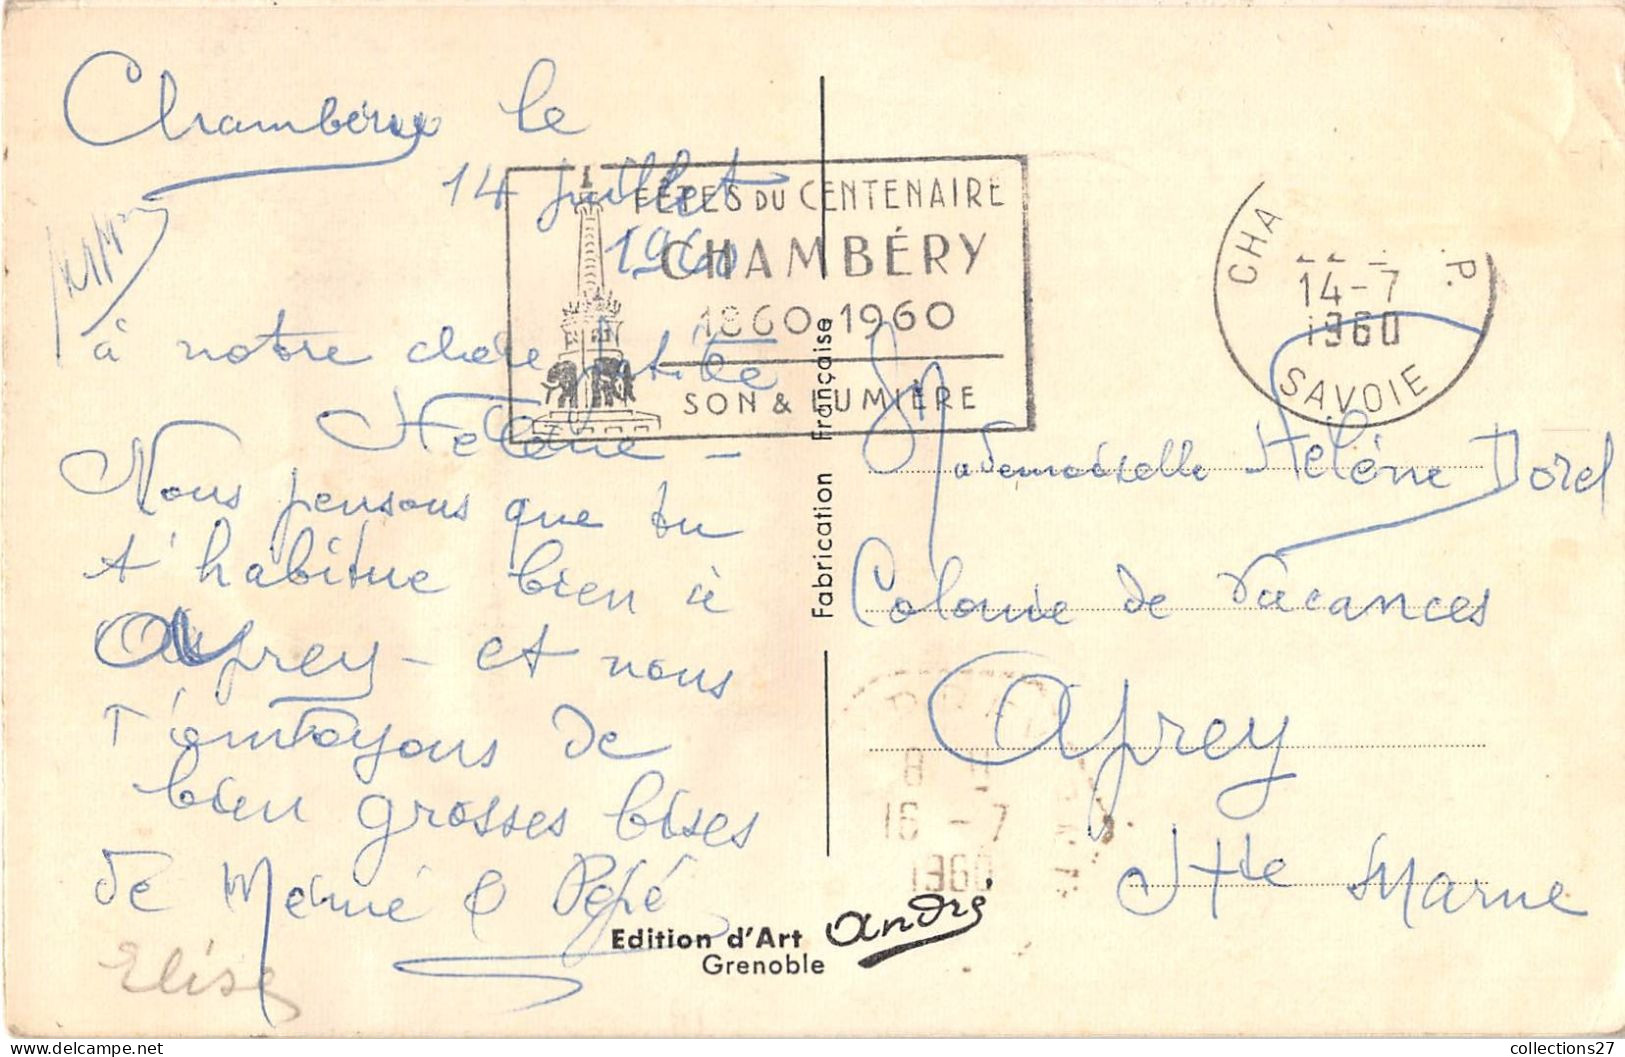 Chambéry le
14 juillet
1960
à notre chère petite
Hélène -
Nous pensons que tu
t'habitue bien à
Aprey - et nous
t'envoyons de
bien grosses bises
de Mémé & Pépé
Elise
FÊTES DU CENTENAIRE
CHAMBÉRY
1860-1960
SON & LUMIÈRE
CHA P.
14-7
1960
SAVOIE
Fabrication Française
Mademoiselle Hélène Dorel
Colonie de Vacances
Aprey
Hte Marne
16 - 7
1960
Edition d'Art andré
Grenoble
collections27